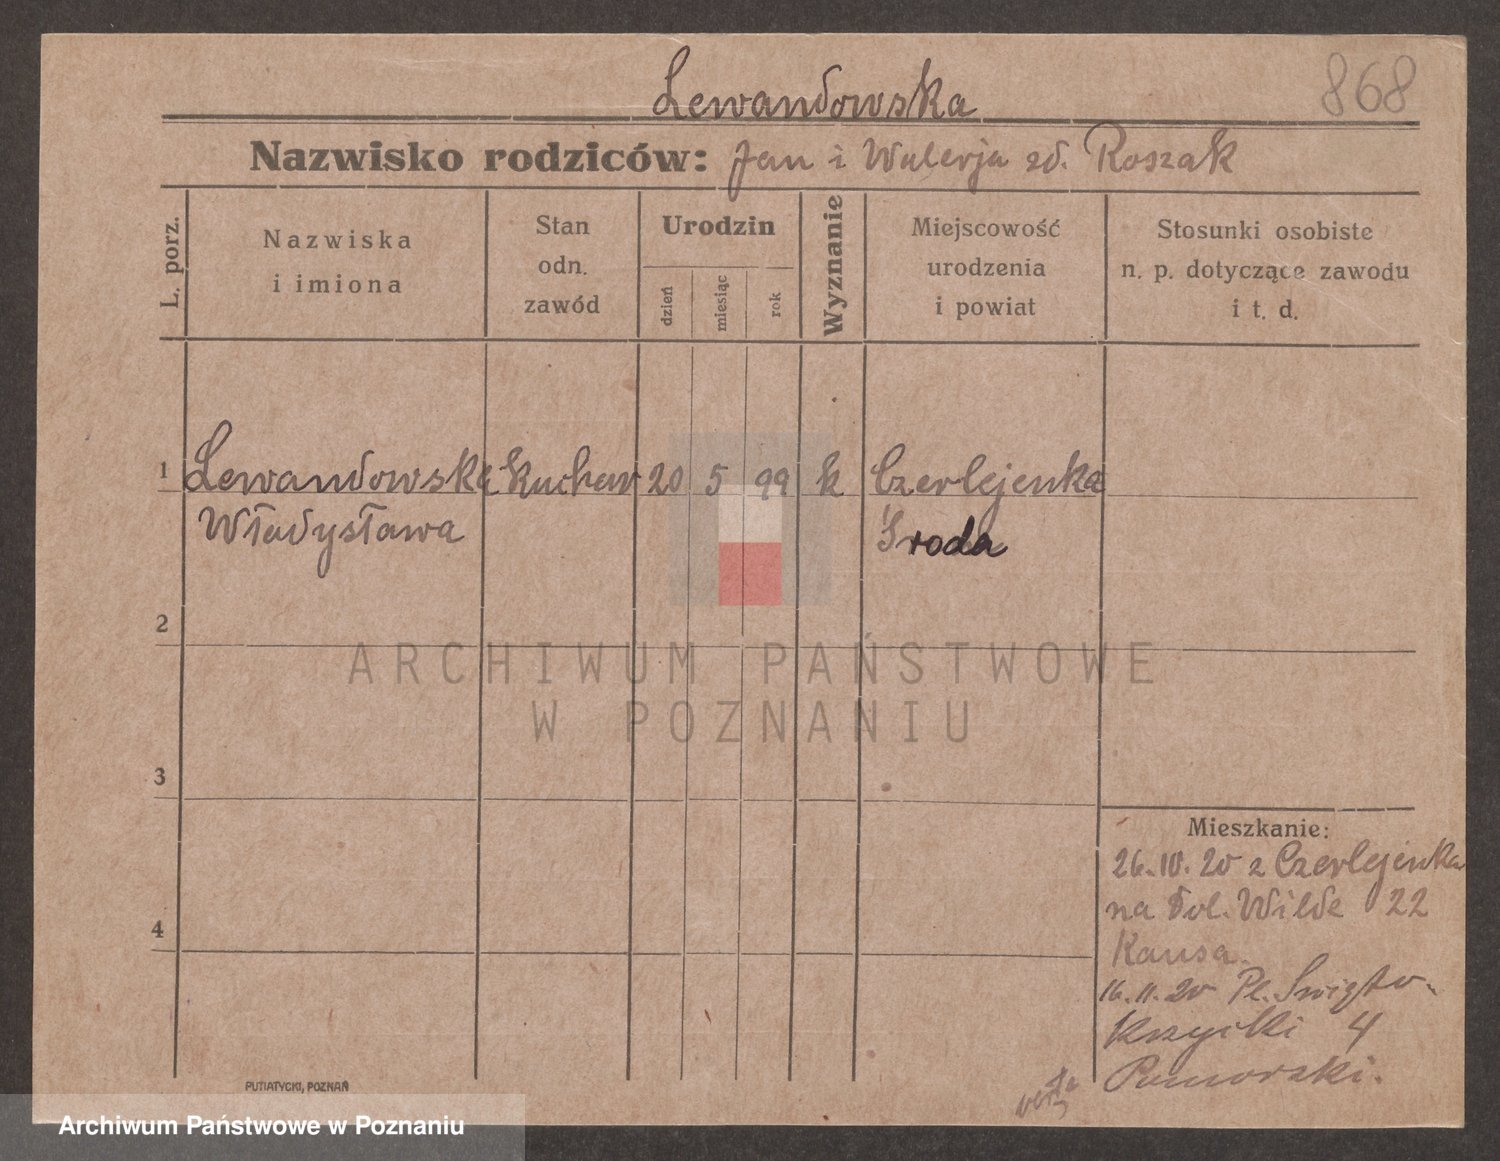 Lewandowska
868
Nazwisko rodziców: Jan i Walerja zd. Roszak
L. porz.
Nazwiska
i imiona
Stan
odn.
zawód
Urodzin
dzień
miesiąc
rok
Wyznanie
Miejscowość
urodzenia
i powiat
Stosunki osobiste
n. p. dotyczące zawodu
i t. d.
1 Lewandowska kuchar 20 5 99 k Czerlejenka
Władysława Środa
2
3
4
Mieszkanie:
26.IV.20 z Czerlejenka
na Dol. Wilde 22
Kausa.
16.11.20 Pl. Święto-
krzyski 4
Pomorski.
PUTIATYCKI, POZNAŃ
ARCHIWUM PAŃSTWOWE
W POZNANIU
Archiwum Państwowe w Poznaniu